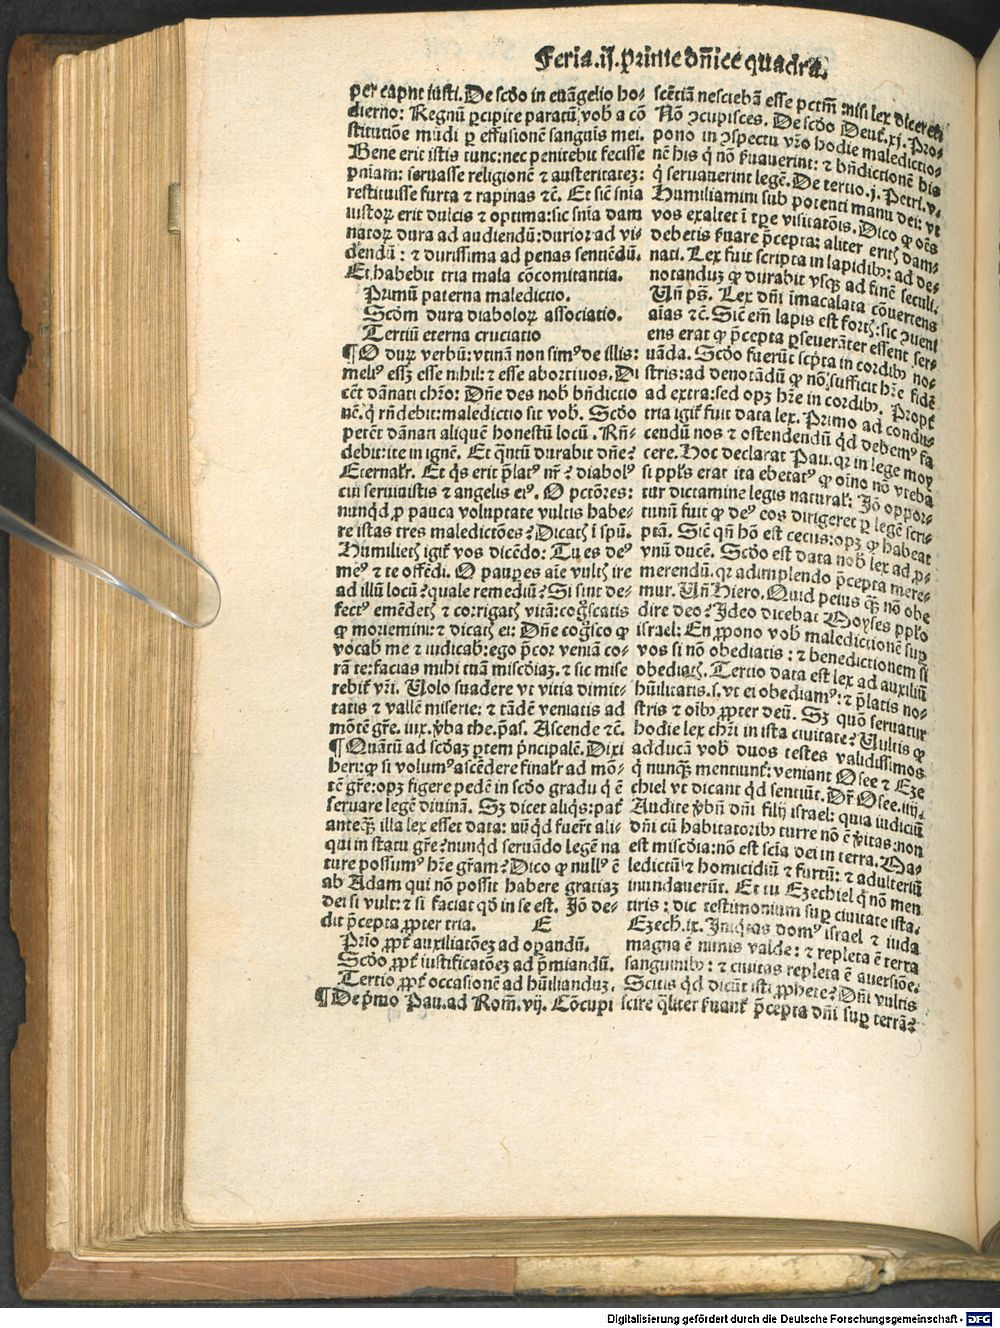 Feria.ij.prime dñice quadra.
per capnt iusti. De scđo in euãgelio ho-
dierno: Regnũ ꝑcipite paratũ, vob a cõ
stitutiõe mũdi ꝑ effusionẽ sanguis mei.
Bene erit istis tunc: nec penitebit fecisse
pniam: seruasse religionẽ ⁊ austeritateꝫ:
restituisse furta ⁊ rapinas ⁊c̃. Et sic̃ snĩa
iustoꝝ erit dulcis ⁊ optima: sic snĩa dam
natoꝝ dura ad audiendũ: durior ad vi-
dendũ: ⁊ durissima ad penas sentiẽdũ.
Et habebit tria mala cõcomitantia.
Primũ paterna maledictio.
Scđm dura diaboloꝝ associatio.
Tertiũ eterna cruciatio
¶ O duꝝ verbũ: vtinã non simꝰ de illis:
meliꝰ essꝫ esse nihil: ⁊ esse abortiuos. Di
cẽt dãnati chr̃o: Dñe des nob bñdictio
nẽ. q̃ rñdebit: maledictio sit vob. Scđo
petẽt dãnari aliquẽ honestũ locũ. Rñ-
debit: ite in ignẽ. Et q̃ntũ durabit dñe?
Eternalr̃. Et q̃s erit p̃latꝰ nr̃? diabolꝰ
cui seruiuistis ⁊ angelis eiꝰ. O pctõres:
nunq̃d ꝓ pauca voluptate vultis habe-
re istas tres maledictões? Dicatꝭ ĩ spũ.
Humilietꝭ igit̃ vos dicẽdo: Tu es deꝰ
meꝰ ⁊ te offẽdi. O paupes aĩe vultꝭ ire
ad illũ locũ? quale remediũ? Si sint de-
fectꝰ emẽdetꝭ ⁊ corrigatꝭ vitã: cog̃scatis
ꝙ moriemini: ⁊ dicatꝭ ei: Dñe cog̃sco ꝙ
vocab̃ me ⁊ iudicab̃: ego p̃cor veniã co-
rã te: facias mihi tuã miscđiaꝫ. ⁊ sic mise
rebit̃ vr̃i. Uolo suadere vt vitia dimit-
tatis ⁊ vallẽ miserie: ⁊ tãdẽ veniatis ad
mõtẽ gr̃e. iux. v̾ba the. p̃as. Ascende ⁊c̃.
¶ Quãtũ ad scđaꝫ ꝑtem p̃ncipalẽ. Dixi
heri: ꝙ si volumꝰ ascẽdere finalr̃ ad mõ-
tẽ gr̃e: opꝫ figere pedẽ in scđo gradu q̃ ẽ
seruare legẽ diuinã. Sꝫ dicet aliq̃s: pat̃
anteq̃ꝫ illa lex esset data: nũq̃d fuer̃t ali-
qui in statu gr̃e? nunq̃d seruãdo legẽ na
ture possumꝰ hr̃e gr̃am? Dico ꝙ nullꝰ ẽ
ab Adam qui nõ possit habere gratiaꝫ
dei si vult: ⁊ si faciat qđ in se est. Jõ de-
dit p̃cepta ꝓpter tria. E
Prĩo ꝓpt̃ auxiliatõeꝫ ad oꝑandũ.
Scđo ꝓpt̃ iustificatõeꝫ ad p̃miandũ.
Tertio ꝓpt̃ occasionẽ ad hũilianduꝫ.
¶ De p̃mo Pau. ad Rom̃. vij. Cõcupi
scẽtiã nesciebã esse pctm̃ nisi lex diceret:
Nõ ꝯcupisces. De scđo Deut̃. xj. Pro-
pono in ꝯspectu vr̃o hodie maledictio-
nẽ his q̃ nõ s̃uauerint: ⁊ bñdictionẽ his
q̃ seruauerint legẽ. De tertio. j. Petri. v.
Humiliamini sub potenti manu dei: vt
vos exaltet ĩ tꝑe visitatõis. Dico ꝙ oẽs
debetis s̃uare p̃cepta: aliter eritꝭ dam-
nati. Lex fuit scripta in lapidibꝰ: ad de-
notanduꝫ ꝙ durabit vsqꝫ ad finẽ seculi.
Uñ ps̃. Lex dñi imacalata cõuertens
aĩas ⁊c̃. Sic̃ em̃ lapis est fortꝭ: sic ꝯueni
ens erat ꝙ p̃cepta ꝑseuerãter essent ser-
uãda. Scđo fuerũt scp̃ta in cordibꝰ no-
stris: ad denotãdũ ꝙ nõ sufficit hr̃e fidẽ
ad extra: sed opꝫ hr̃e in cordibꝰ. Propt̃
tria igit̃ fuit data lex. Primo ad condu-
cendũ nos ⁊ ostendendũ q̃d debemꝰ fa
cere. Hoc declarat Pau. qꝛ in lege moy
si ppl̃s erat ita ebetatꝰ ꝙ oĩno nõ vteba
tur dictamine legis natural̃: Jõ oppor-
tunũ fuit ꝙ deꝰ eos dirigeret ꝑ legẽ scri-
ptã. Sic̃ qñ hõ est cecus: opꝫ ꝙ habeat
vnũ ducẽ. Scđo est data nob lex ad ꝓ-
merendũ. qꝛ adimplendo p̃cepta mere-
mur. Uñ Hiero. Quid peius q̃ꝫ nõ obe
dire deo? Jdeo dicebat Moyses ppl̃o
israel: En ꝓpono vob maledictionẽ suꝑ
vos si nõ obediatis: ⁊ benedictionem si
obediatꝭ. Tertio data est lex ad auxiliũ
hũilitatis. s. vt ei obediamꝰ: ⁊ p̃latis no-
stris ⁊ oĩbꝰ ꝓpter deũ. Sꝫ quõ seruatur
hodie lex chr̃i in ista ciuitate? Uultis ꝙ
adducã vob duos testes validissimos
q̃ nunq̃ꝫ mentiunt̃: veniant Osee ⁊ Eze
chiel vt dicant q̃d sentiũt. Dr̃ Osee. iiij.
Audite v̾bũ dñi filij israel: quia iudiciũ
dñi cũ habitatoribꝰ terre nõ ẽ v̾itas: non
est miscđia: nõ est scĩa dei in terra. Ma-
ledictũ ⁊ homicidiũ ⁊ furtũ: ⁊ adulteriũ
inundauerũt. Et tu Ezechiel q̃ nõ men
tiris: dic testimonium suꝑ ciuitate ista.
Ezech. ix. Jniq̃tas domꝰ israel ⁊ iuda
magna ẽ nimis valde: ⁊ repleta ẽ terra
sanguinibꝰ: ⁊ ciuitas repleta ẽ auersiõe.
Scitis q̃d dicũt isti ꝓphete? Dñi vultis
scire q̃liter s̃uant̃ p̃cepta dñi suꝑ terrã?
Digitalisierung gefördert durch die Deutsche Forschungsgemeinschaft - DFG